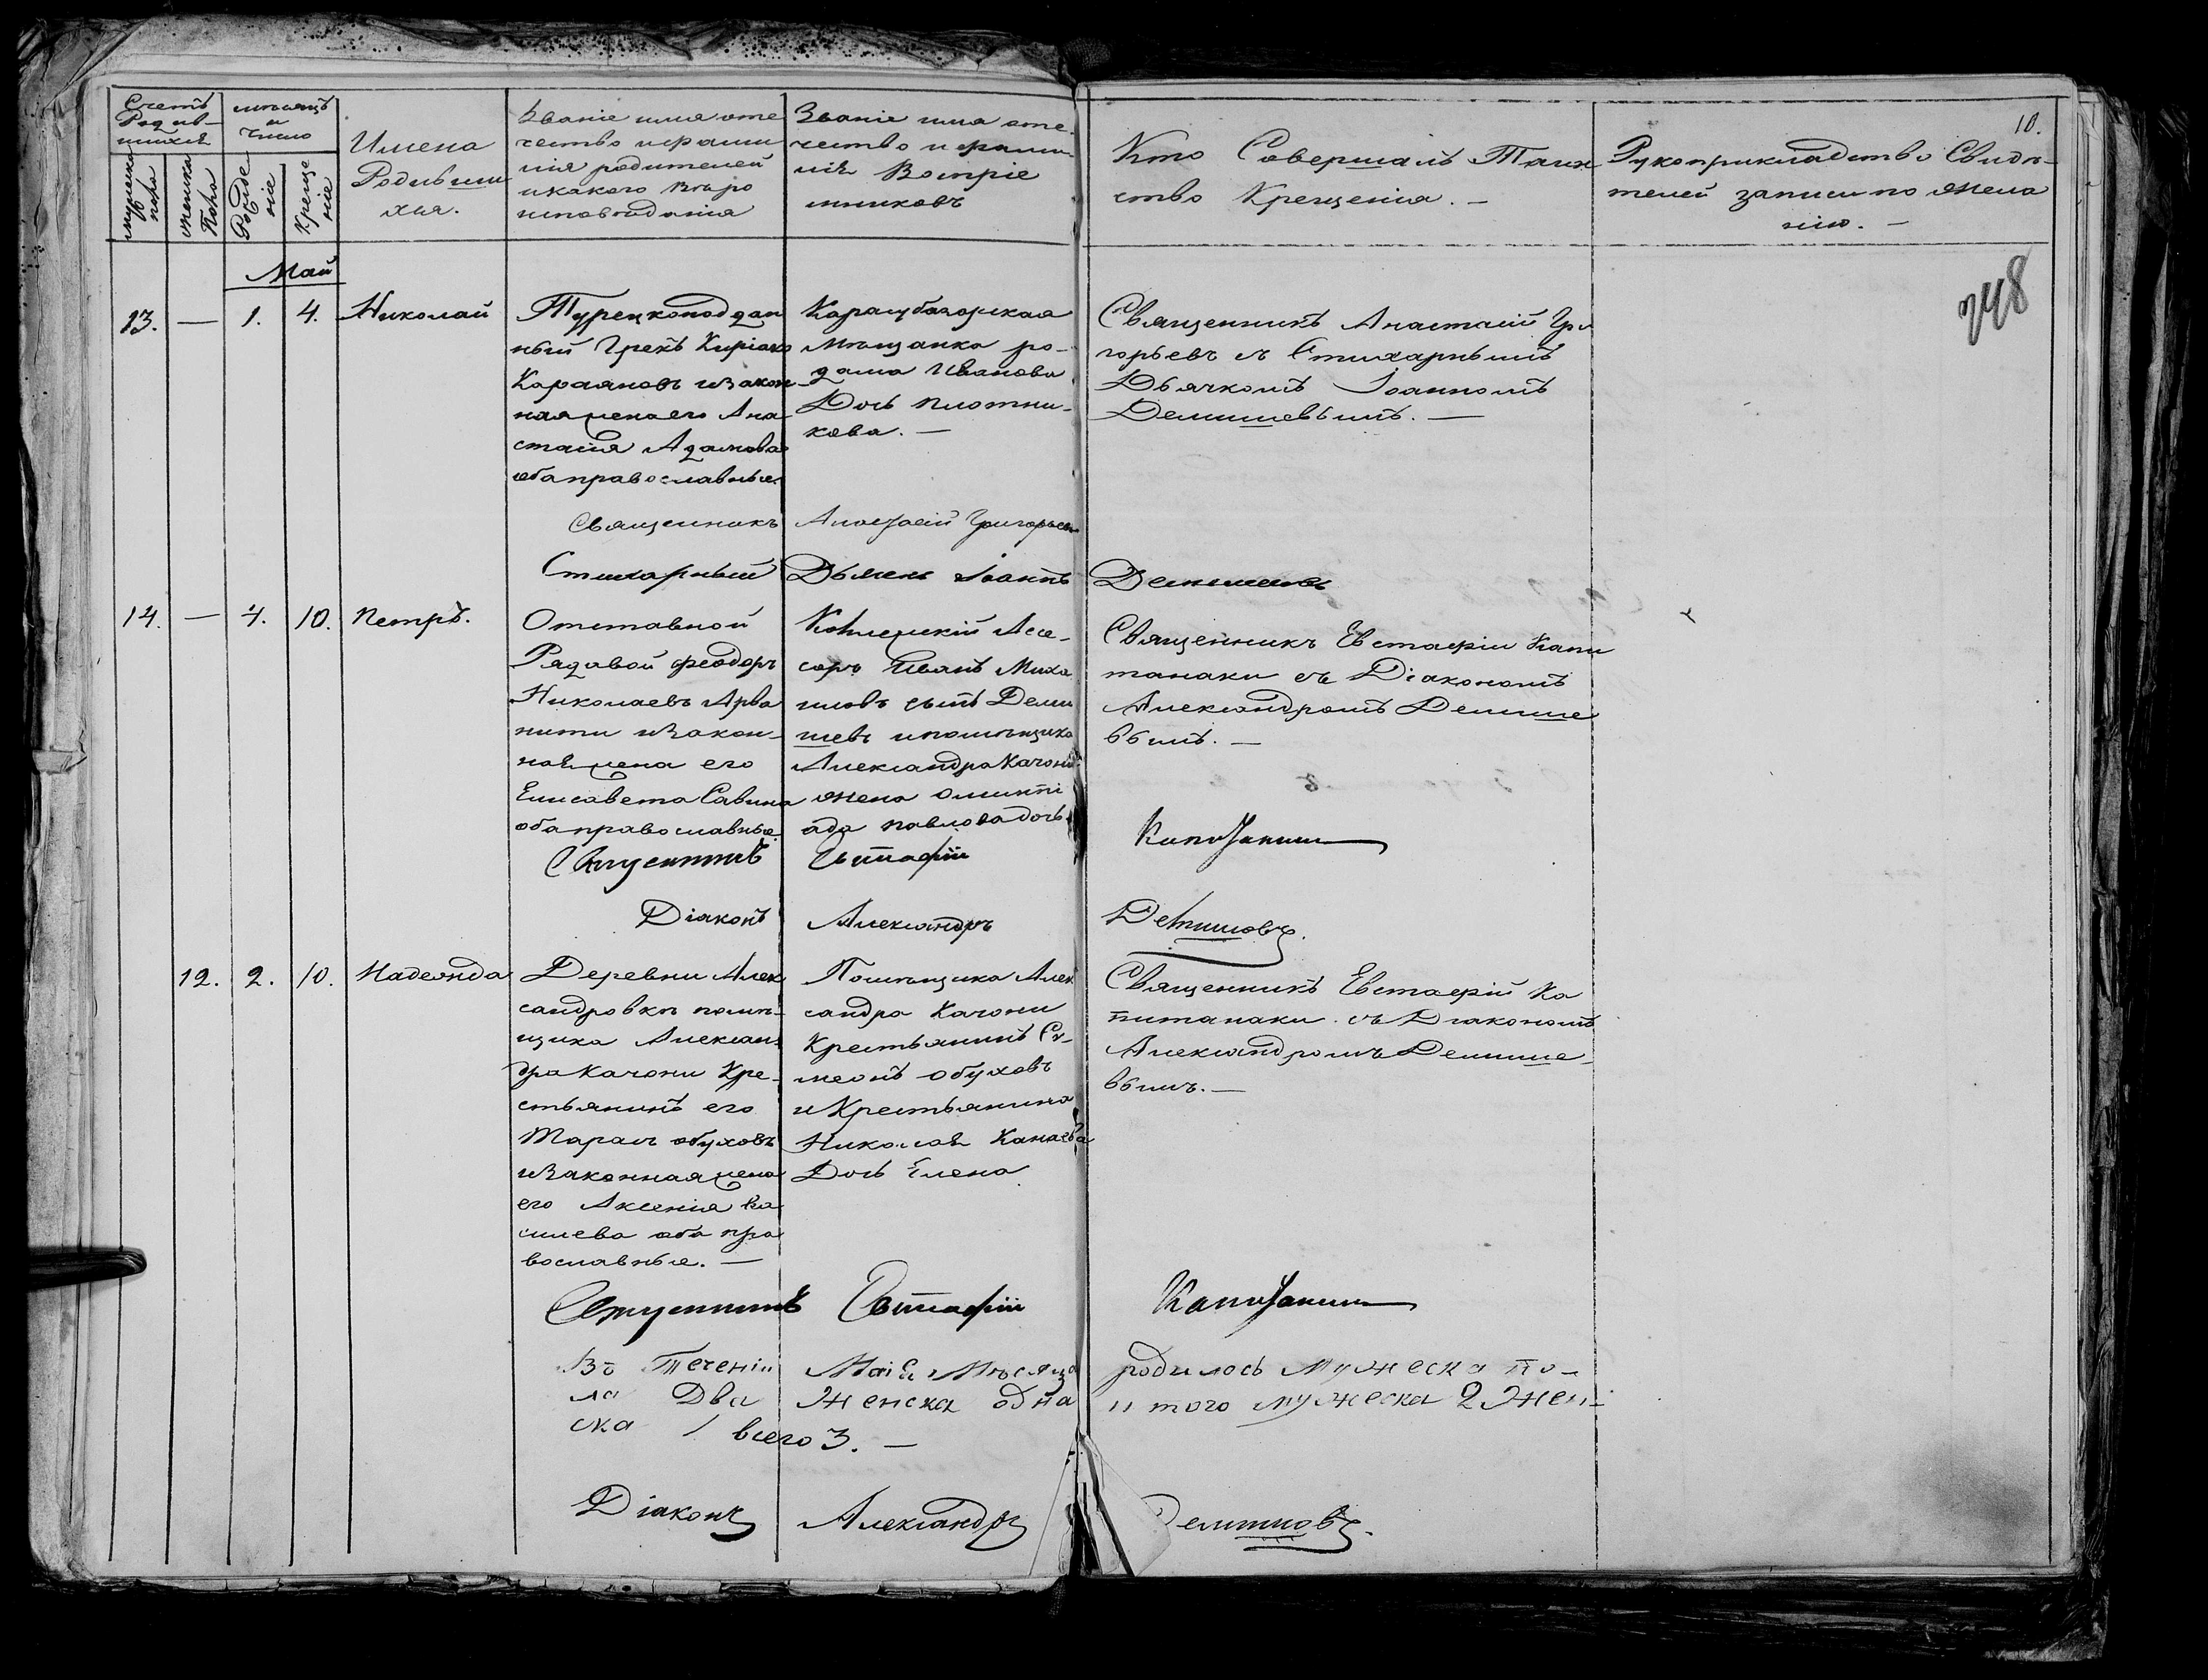 Счетъ
Родив-
шихся
мужеска
пола
женска
пола
мѣсяцъ
и
число
Рожде
ніе
Креще
ніе
Имена
Родивши
хся.
Званіе имя оте
чество и фами
лія родителей
и какого вѣро
исповѣданія
Званіе имя оте-
чество и фами-
лія Воспріе
мниковъ
Кто Совершалъ Таин
ство Крещенія. –
Рукоприкладство Свидѣ-
телей записи по жела
нію. –
10.
248
Май
13. — 1. 4. Николай
Турецкоподдан
ный Грекъ Киріако
Караяновъ и закон-
ная жена его Ана-
стасія Адамова
оба православные
Карасубазарская
мѣщанка ро-
Иванова
Дочь Плотни-
кова. —
Священникъ Анастасій Гри
горьевъ съ Стихарнымъ
Дьячкомъ Іоанномъ
Демишевымъ. —
Священникъ Анастасій Григорьевъ
Стихарный Дьячекъ Іоаннъ Демишевъ
14. — 4. 10. Петръ.
Отставной
Рядовой Феодоръ
Николаевъ Арва
нити и закон-
ная жена его
Елисавета Савина
оба православные
Коллежскій Асе-
соръ Иванъ Миха
иловъ сынъ Деми
шевъ и помѣщика
Александра Качони
жена Олимпі
ада Павлова дочь
Священникъ Евстафій Капи
танаки съ Діакономъ
Александромъ Демише
вымъ. —
Священникъ Евстафій Капитанаки
Діаконъ Александръ Демишевъ.
12. 2. 10. Надежда
Деревни Алек
сандровки помѣ-
щика Алексан-
дра Качони Кре-
стьянинъ его
Тарасъ Обуховъ
и законная жена
его Аксенія Ва
сильева оба пра
вославные. —
Помѣщика Алек
сандра Качони
Крестьянинъ Си-
меонъ Обуховъ
и Крестьянина
Николая Канаева
Дочь Елена
Священникъ Евстафій Ка
питанаки съ Діакономъ
Александромъ Демише-
вымъ. —
Священникъ Евстафій Капитанаки
Въ Теченіи Маія Мѣсяца родилось Мужеска по-
ла Два Женска одна итого мужеска 2 Жен-
ска 1 всего 3. —
Діаконъ Александръ Демишевъ.